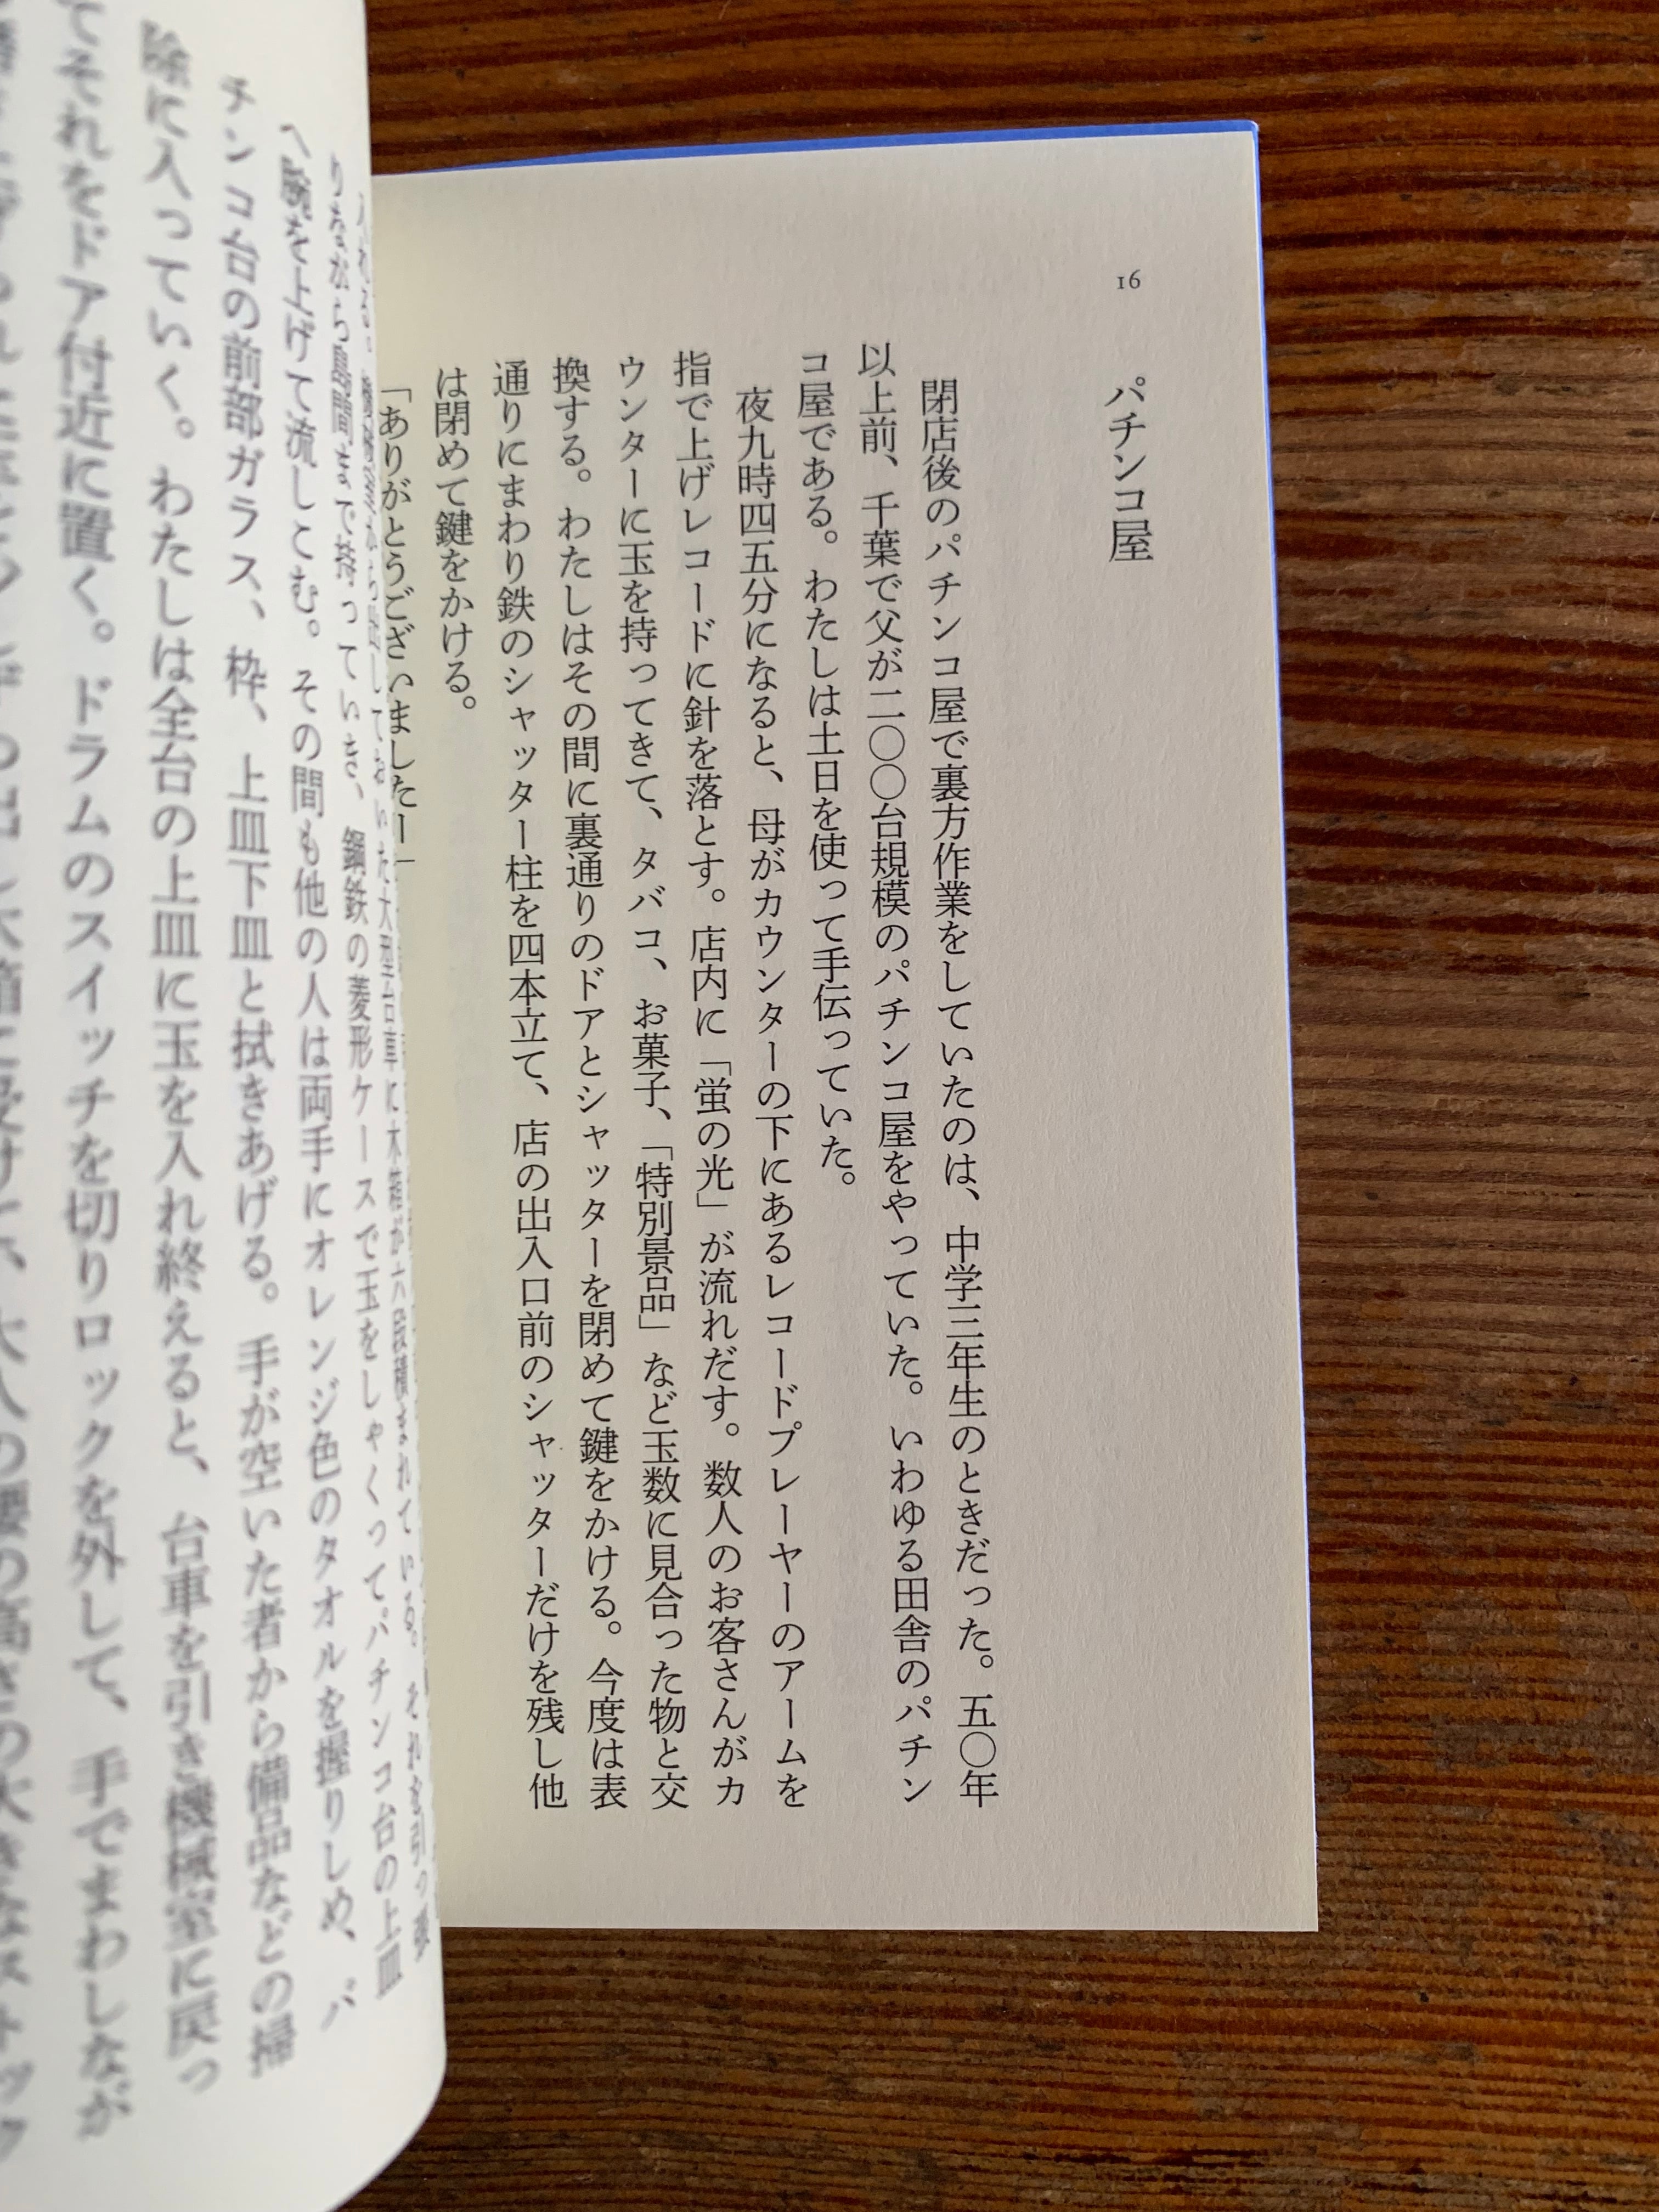 16
パチンコ屋
閉店後のパチンコ屋で裏方作業をしていたのは、中学三年生のときだった。五〇年
以上前、千葉で父が二〇〇台規模のパチンコ屋をやっていた。いわゆる田舎のパチン
コ屋である。わたしは土日を使って手伝っていた。
夜九時四五分になると、母がカウンターの下にあるレコードプレーヤーのアームを
指で上げレコードに針を落とす。店内に「蛍の光」が流れだす。数人のお客さんがカ
ウンターに玉を持ってきて、タバコ、お菓子、「特別景品」など玉数に見合った物と交
換する。わたしはその間に裏通りのドアとシャッターを閉めて鍵をかける。今度は表
通りにまわり鉄のシャッター柱を四本立て、店の出入口前のシャッターだけを残し他
は閉めて鍵をかける。
「ありがとうございましたー」
りながら島間まで持っていき、鋼鉄の菱形ケースで玉をしゃくってパチンコ台の上皿
へ腕を上げて流しこむ。その間も他の人は両手にオレンジ色のタオルを握りしめ、パ
チンコ台の前部ガラス、枠、上皿下皿と拭きあげる。手が空いた者から備品などの掃
除に入っていく。わたしは全台の上皿に玉を入れ終えると、台車を引き機械室に戻っ
てそれをドア付近に置く。ドラムのスイッチを切りロックを外して、手でまわしなが